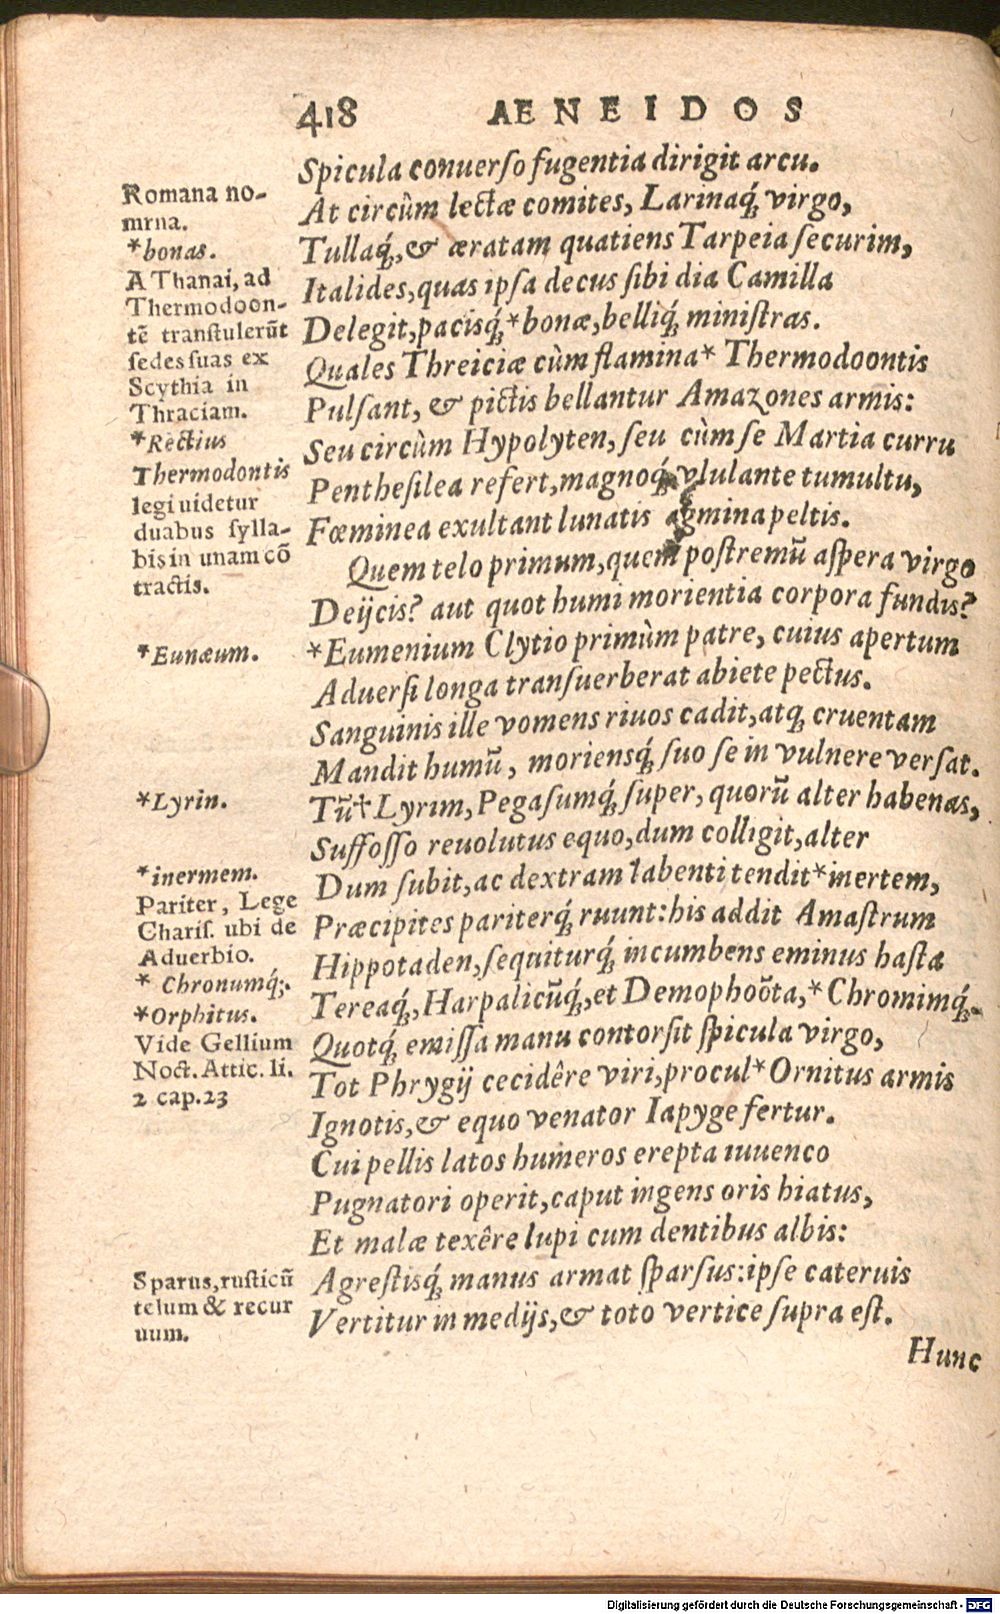 418 AENEIDOS
Spicula conuerſo fugentia dirigit arcu.
At circùm lectæ comites, Larinaq́; virgo,
Tullaq́;, & æratam quatiens Tarpeia ſecurim,
Italides, quas ipſa decus ſibi dia Camilla
Delegit, pacisq́; *bonæ, belliq́; miniſtras.
Quales Threiciæ cùm flamina* Thermodoontis
Pulſant, & pictis bellantur Amazones armis:
Seu circùm Hypolyten, ſeu cùm ſe Martia curru
Pentheſilea refert, magnoq́; vlulante tumultu,
Fœminea exultant lunatis agmina peltis.
Quem telo primum, quem poſtremũ aſpera virgo
Deijcis? aut quot humi morientia corpora fundis?
*Eumenium Clytio primùm patre, cuius apertum
Aduerſi longa tranſuerberat abiete pectus.
Sanguinis ille vomens riuos cadit, atq; cruentam
Mandit humũ, moriensq́; ſuo ſe in vulnere verſat.
Tũ† Lyrim, Pegaſumq́; ſuper, quorũ alter habenas,
Suffoſſo reuolutus equo, dum colligit, alter
Dum ſubit, ac dextram labenti tendit *inertem,
Præcipites pariterq́; ruunt: his addit Amaſtrum
Hippotaden, ſequiturq́; incumbens eminus haſta
Tereaq́;, Harpalicũq́;, et Demophoōta, *Chromimq́;.
Quotq́; emiſſa manu contorſit ſpicula virgo,
Tot Phrygij cecidêre viri, procul* Ornitus armis
Ignotis, & equo venator Iapyge fertur.
Cui pellis latos humeros erepta iuuenco
Pugnatori operit, caput ingens oris hiatus,
Et malæ texêre lupi cum dentibus albis:
Agreſtisq́; manus armat ſparſus: ipſe cateruis
Vertitur in medijs, & toto vertice ſupra eſt.
Hunc
Romana no-
mrna.
*bonas.
A Thanai, ad
Thermodoon-
tẽ tranſtulerũt
ſedes ſuas ex
Scythia in
Thraciam.
*Rectius
Thermodontis
legi uidetur
duabus ſylla-
bis in unam cō
tractis.
*Eunæum.
*Lyrin.
*inermem.
Pariter, Lege
Chariſ. ubi de
Aduerbio.
* Chronumq́;.
*Orphitus.
Vide Gellium
Noct. Attic. li.
2 cap. 23
Sparus, ruſticũ
telum & recur
uum.
Digitalisierung gefördert durch die Deutsche Forschungsgemeinschaft - DFG